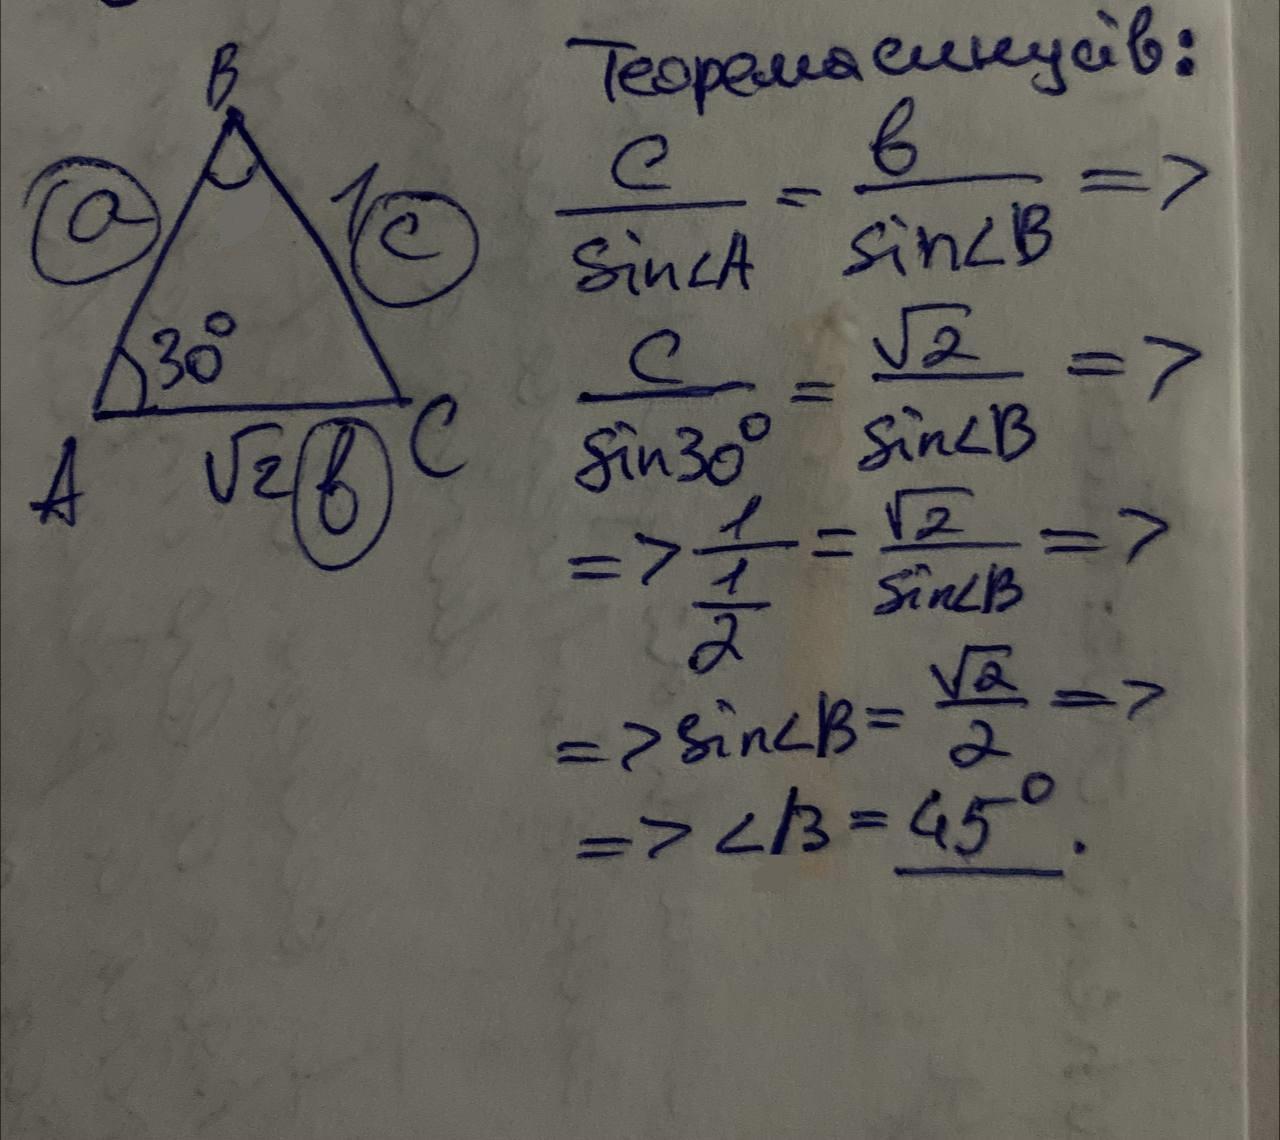 B
a
1 c
30°
A
√2 b
C
Теорема синусів:
c/sin∠A = b/sin∠B =>
c/sin30° = √2/sin∠B =>
=> 1/(1/2) = √2/sin∠B =>
=> sin∠B = √2/2 =>
=> ∠B = 45°.